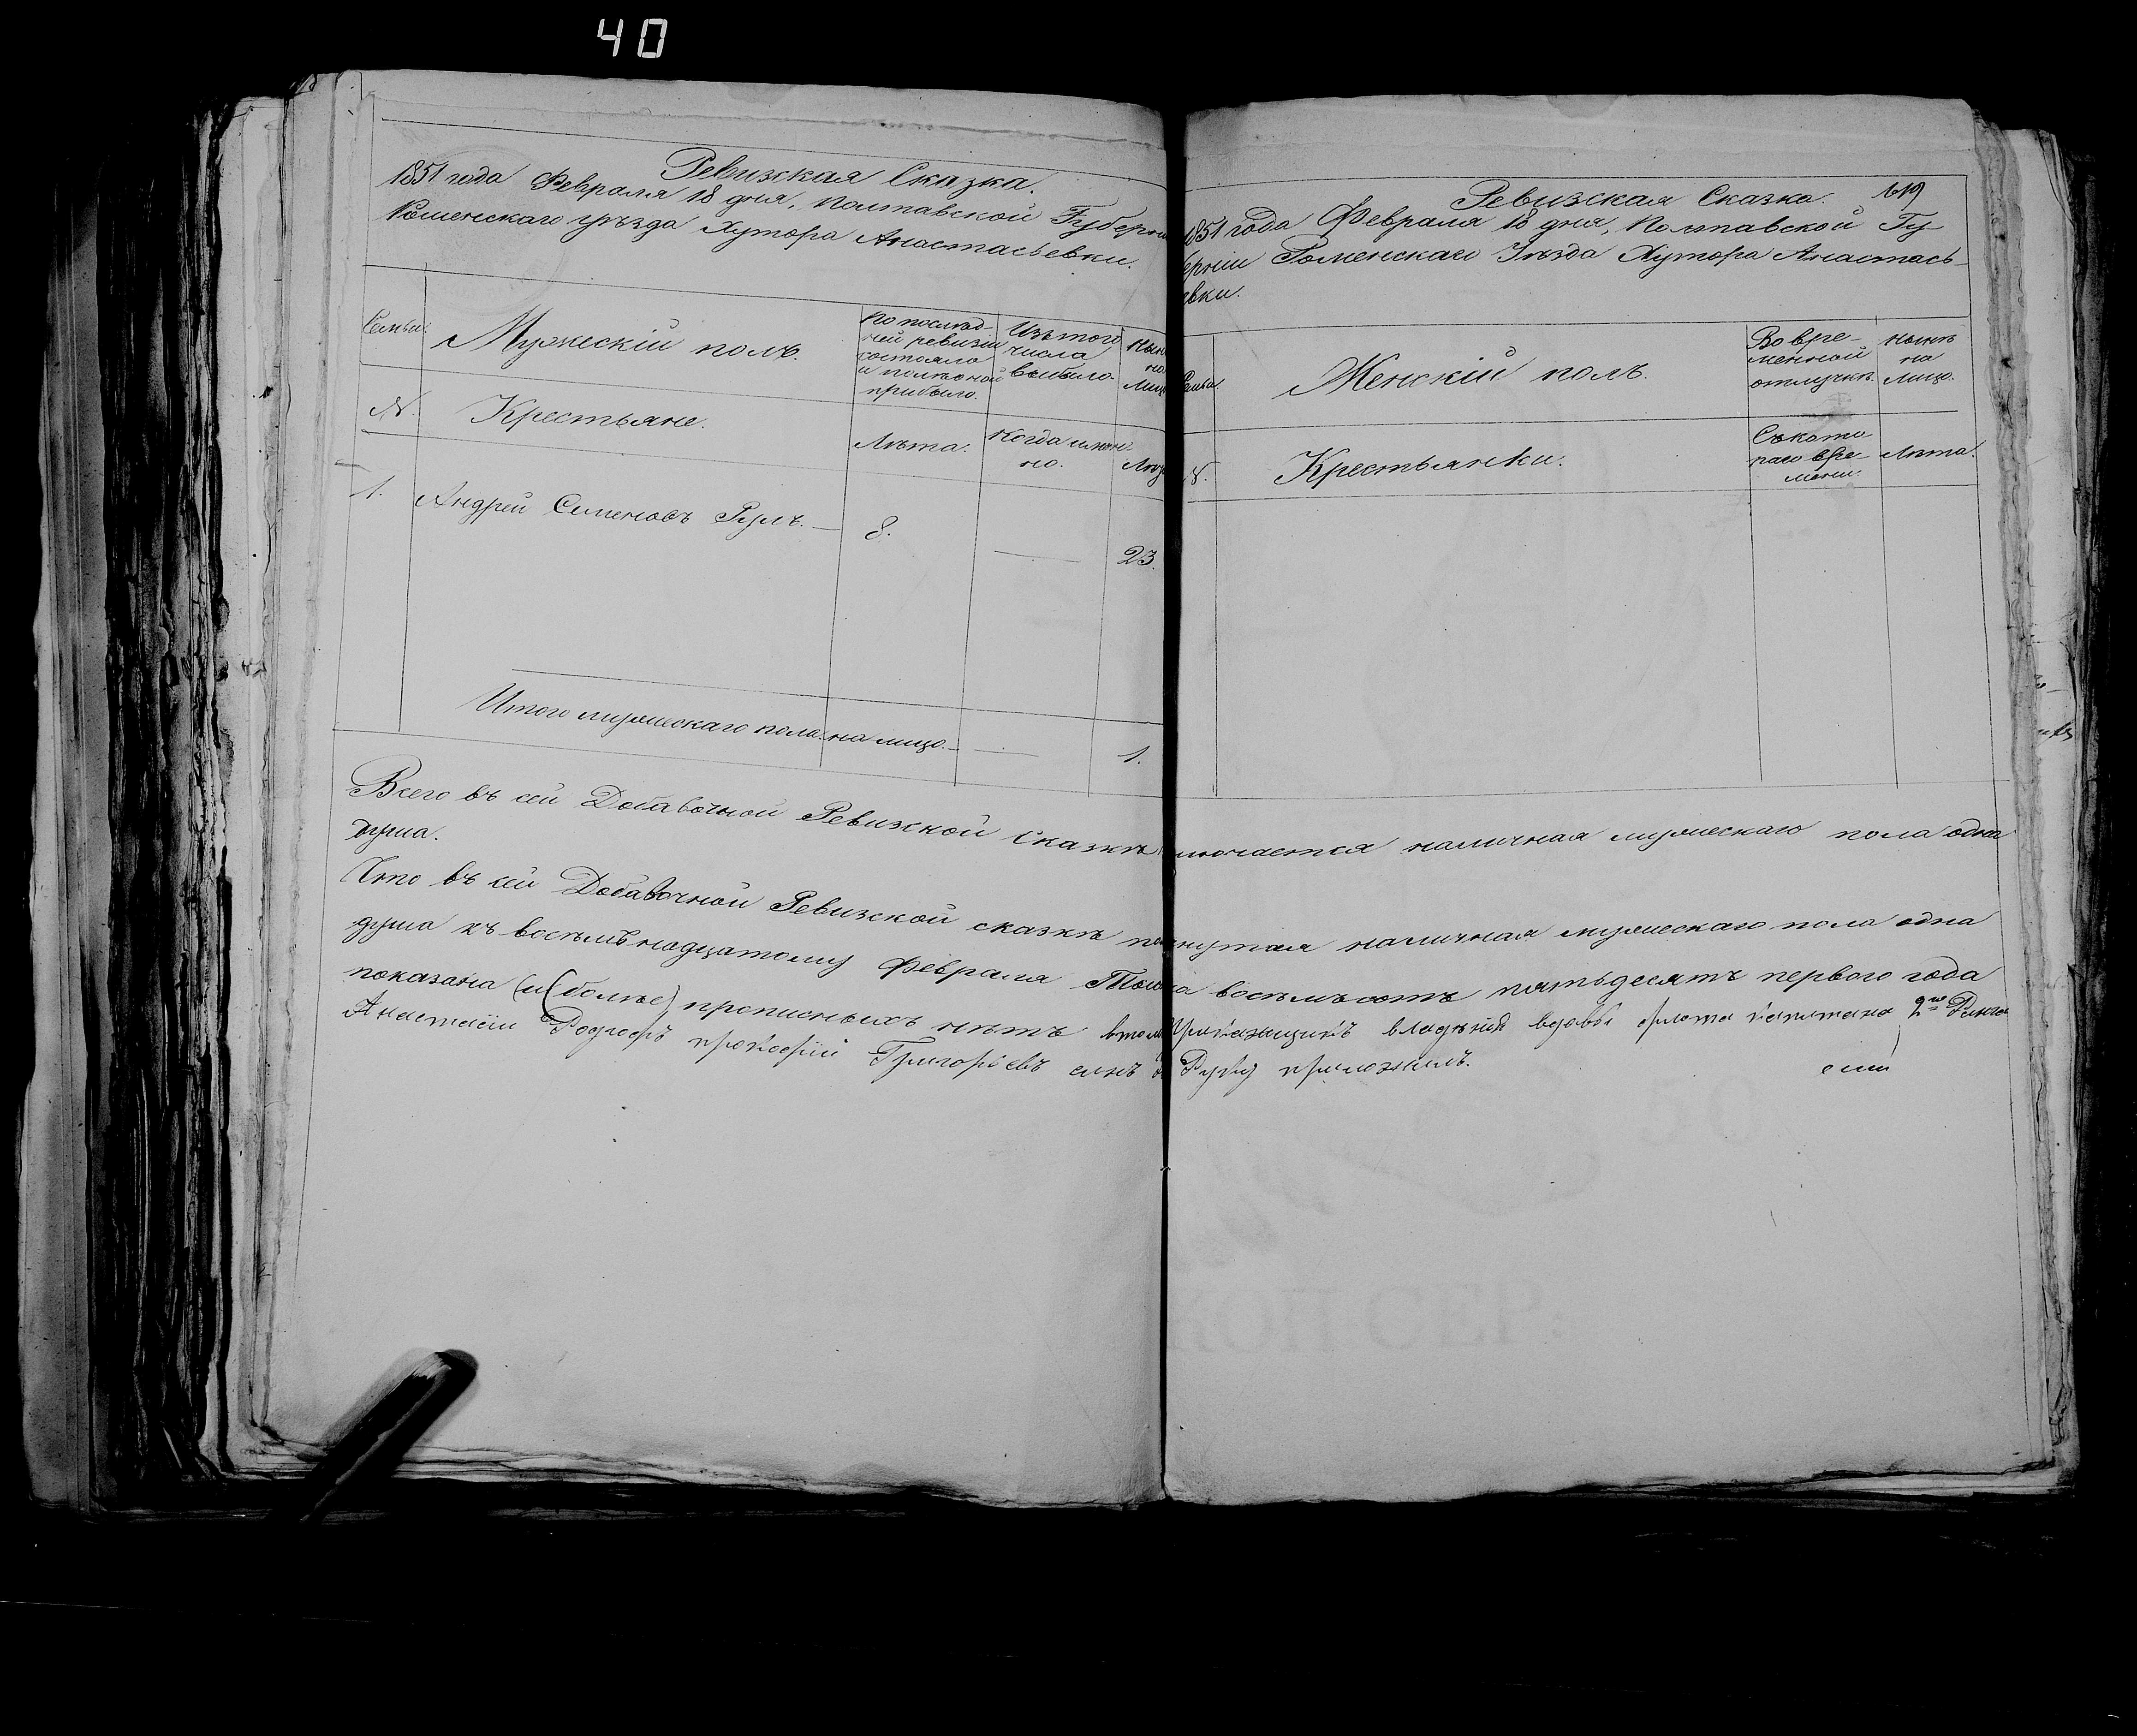 40
Ревизская Сказка.
1851 года Февраля 18 дня, Полтавской Губерніи
Роменскаго уѣзда Хутора Анастасьевки.
Семьи.
Мужескій полъ.
По послѣд-
ней ревизіи
состояло
и послѣ оной
прибыло.
Изъ того
числа
выбыло.
Нын
на
Лицо
№.
Крестьяне.
Лѣта.
Когда имен-
но.
Лѣта
1.
Андрей Семеновъ
8.
23.
Итого мужескаго пола на лицо.
1.
Ревизская Сказка.
619
1851 года Февраля 18 дня, Полтавской Гу-
берніи Роменскаго Уѣзда Хутора Анастась-
евки.
Семьи
Женскій полъ.
Во вре-
менной
отлучкѣ.
Нынѣ
на
Лицо.
№.
Крестьянки.
Съ кото-
раго вре-
мени.
Лѣта.
Всего въ сей Добавочной Ревизской Сказкѣ заключается наличная мужескаго пола одна
душа.
Что въ сей Добавочной Ревизской сказкѣ наличная мужескаго пола одна
душа къ восемьнадцатому Февраля Тысяча восемьсотъ пятьдесятъ первого года
показана (и болѣе) прописныхъ нѣтъ втомъ Прикащикъ владѣній вдовы флота капитана 2го Ранга
Анастасіи Прокофій Григорьевъ сынъ Руку приложилъ.